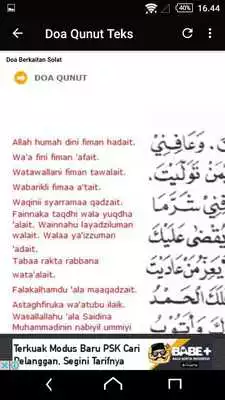 40% 16.44
Doa Qunut Teks
Doa Berkaitan Solat
DOA QUNUT
Allah humah dini fiman hadait.
Wa'a fini fiman 'afait.
Watawallani fiman tawalait.
Wabarikli fimaa a'tait.
Waqinii syarramaa qadzait.
Fainnaka taqdhi wala yuqdha
'alait. Wainnahu layadziluman
walait. Walaa ya'izzuman
'adait.
Tabaa rakta rabbana
wata'alait.
Falakalhamdu 'ala maaqadzait.
Astaghfiruka wa'atubu ilaik.
Wasallallahu 'ala Saidina
Muhammadinin nabiyil ummiyi
وَعَافِنِيْ
تَوَلَّيْتَ،
شَرَّمَا
يُقْضٰى عَلَيْكَ
عَادَيْتَ
الْحَمْدُ
وَاَتُوْبُ
Terkuak Modus Baru PSK Cari
Pelanggan, Segini Tarifnya
BABE+